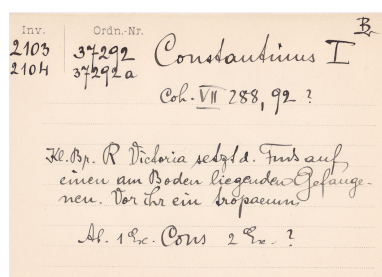 B.
Inv. Ordn.-Nr.
2103 37292 Constantinus I
2104 37292a
Coh. VII 288, 92 ?
Kl. Br. R Victoria setzt d. Fuß auf
einen am Boden liegenden Gefange-
nen. Vor ihr ein tropaeum
Ab. 1 Ex. Cons 2 Ex. ?